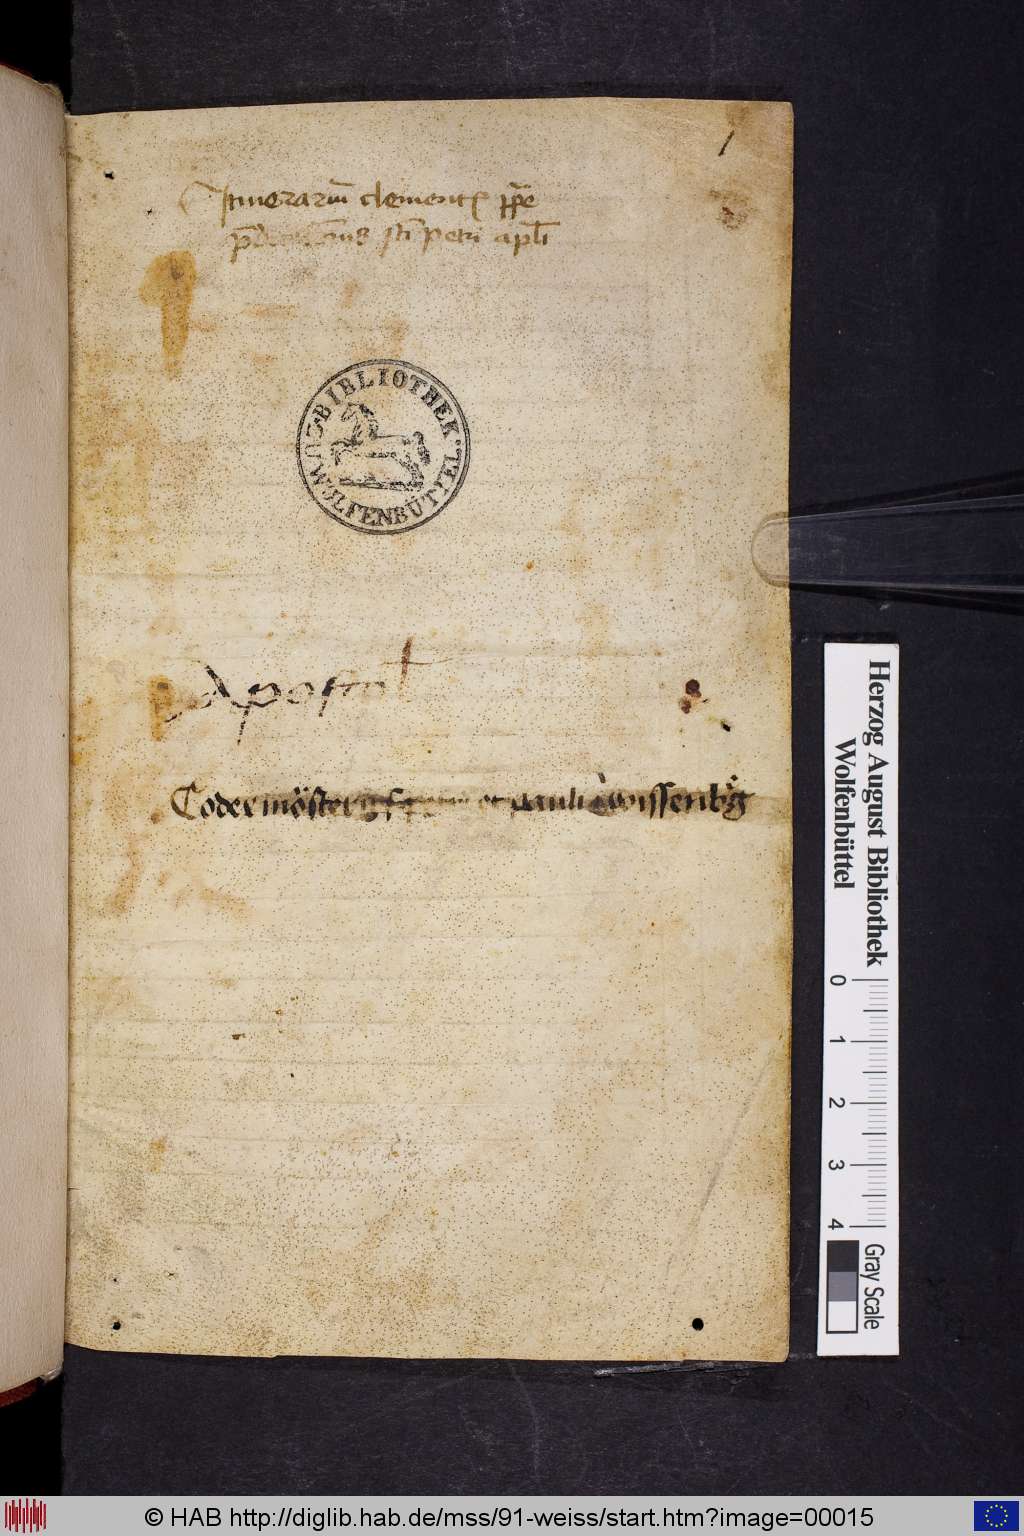 1
Itinerariū clement pp̄e
sc̄i petri apl̄i
BIBLIOTHEK · ZU WOLFENBÜTTEL ·
Apostol
Codex mōsterij et pauli wissenbůg
Herzog August Bibliothek
Wolfenbüttel
0 1 2 3 4
Gray Scale
© HAB http://diglib.hab.de/mss/91-weiss/start.htm?image=00015